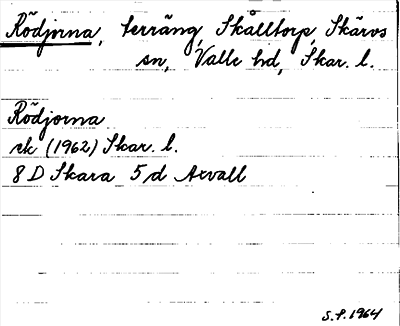 Rödjorna, terräng, Skålltorp, Skärvs
sn, Valle hd, Skar. l.
Rödjorna
ek (1962) Skar. l.
8 D Skara 5 d Axvall
S.P. 1964